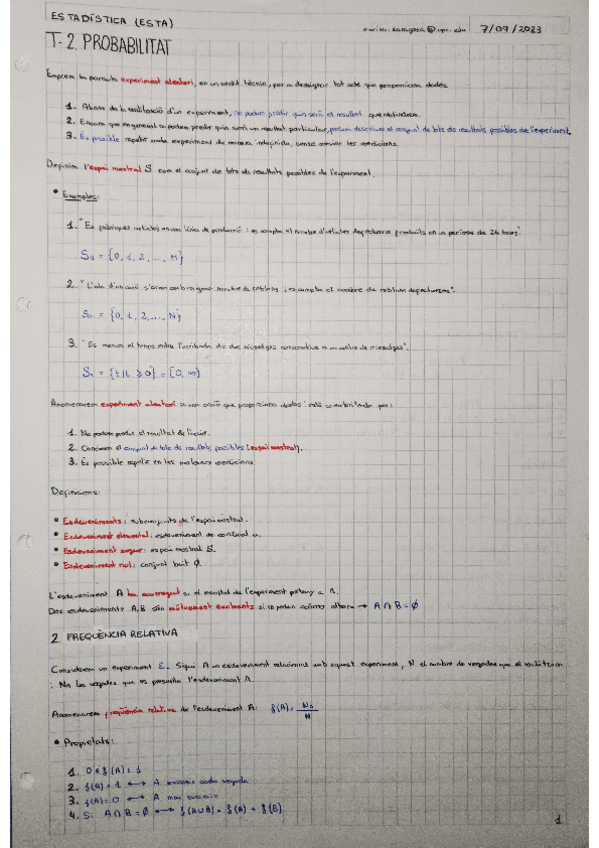 ESTADÍSTICA (ESTA)
7/09/2023
T-2. PROBABILITAT
Emprem la paraula experiment aleatori, en un sentit tècnic, per a designar tot acte que proporciona dades.
1. Abans de la realització d'un experiment, no podem predir quin serà el resultat que obtindrem.
2. Encara que en general no podem predir quin serà un resultat particular, podem descriure el conjunt de tots els resultats possibles de l'experiment.
3. És possible repetir amb experiment de manera indefinida, sense canviar les condicions.
Definim l'espai mostral S com el conjunt de tots els resultats possibles de l'experiment.
• Exemples:
1. "Es fabriquen articles en una línia de producció i es compta el nombre d'articles defectuosos produïts en un període de 24 hores".
S₁ = {0, 1, 2, ..., N}
2. "L'ala d'un avió s'arma amb un gran nombre de i es compta el nombre de defectuosos".
= {0, 1, 2, ..., N}
3. "Es mesura el temps entre l'arribada de dos missatges consecutius a un".
= {t | t ≥ 0} = [0, ∞)
Anomenarem experiment aleatori a una acció que proporciona dades i està caracteritzada per:
1. No podem predir el resultat de l'acció.
2. Coneixem el conjunt de tots els resultats possibles (espai mostral).
3. És possible repetir en les mateixes condicions.
Definicions:
• Esdeveniments: subconjunts de l'espai mostral.
• Esdeveniment elemental: esdeveniment de cardinal u.
• Esdeveniment segur: espai mostral S.
• Esdeveniment nul: conjunt buit ∅.
L'esdeveniment A ha ocorregut si el resultat de l'experiment pertany a A.
Dos esdeveniments A, B són mútuament excloents si no poden ocórrer alhora → A ∩ B = ∅
2. FREQÜÈNCIA RELATIVA
Considerem un experiment E. Sigui A un esdeveniment relacionat amb aquest experiment, N el nombre de vegades que el realitzem
i N_A les vegades que es presenta l'esdeveniment A.
Anomenarem freqüència relativa de l'esdeveniment A: f(A) = N_A / N
• Propietats:
1. 0 ≤ f(A) ≤ 1
2. f(A) = 1 ↔ A cada vegada
3. f(A) = 0 ↔ A mai
4. Si A ∩ B = ∅ ↔ f(A∪B) = f(A) + f(B)
1